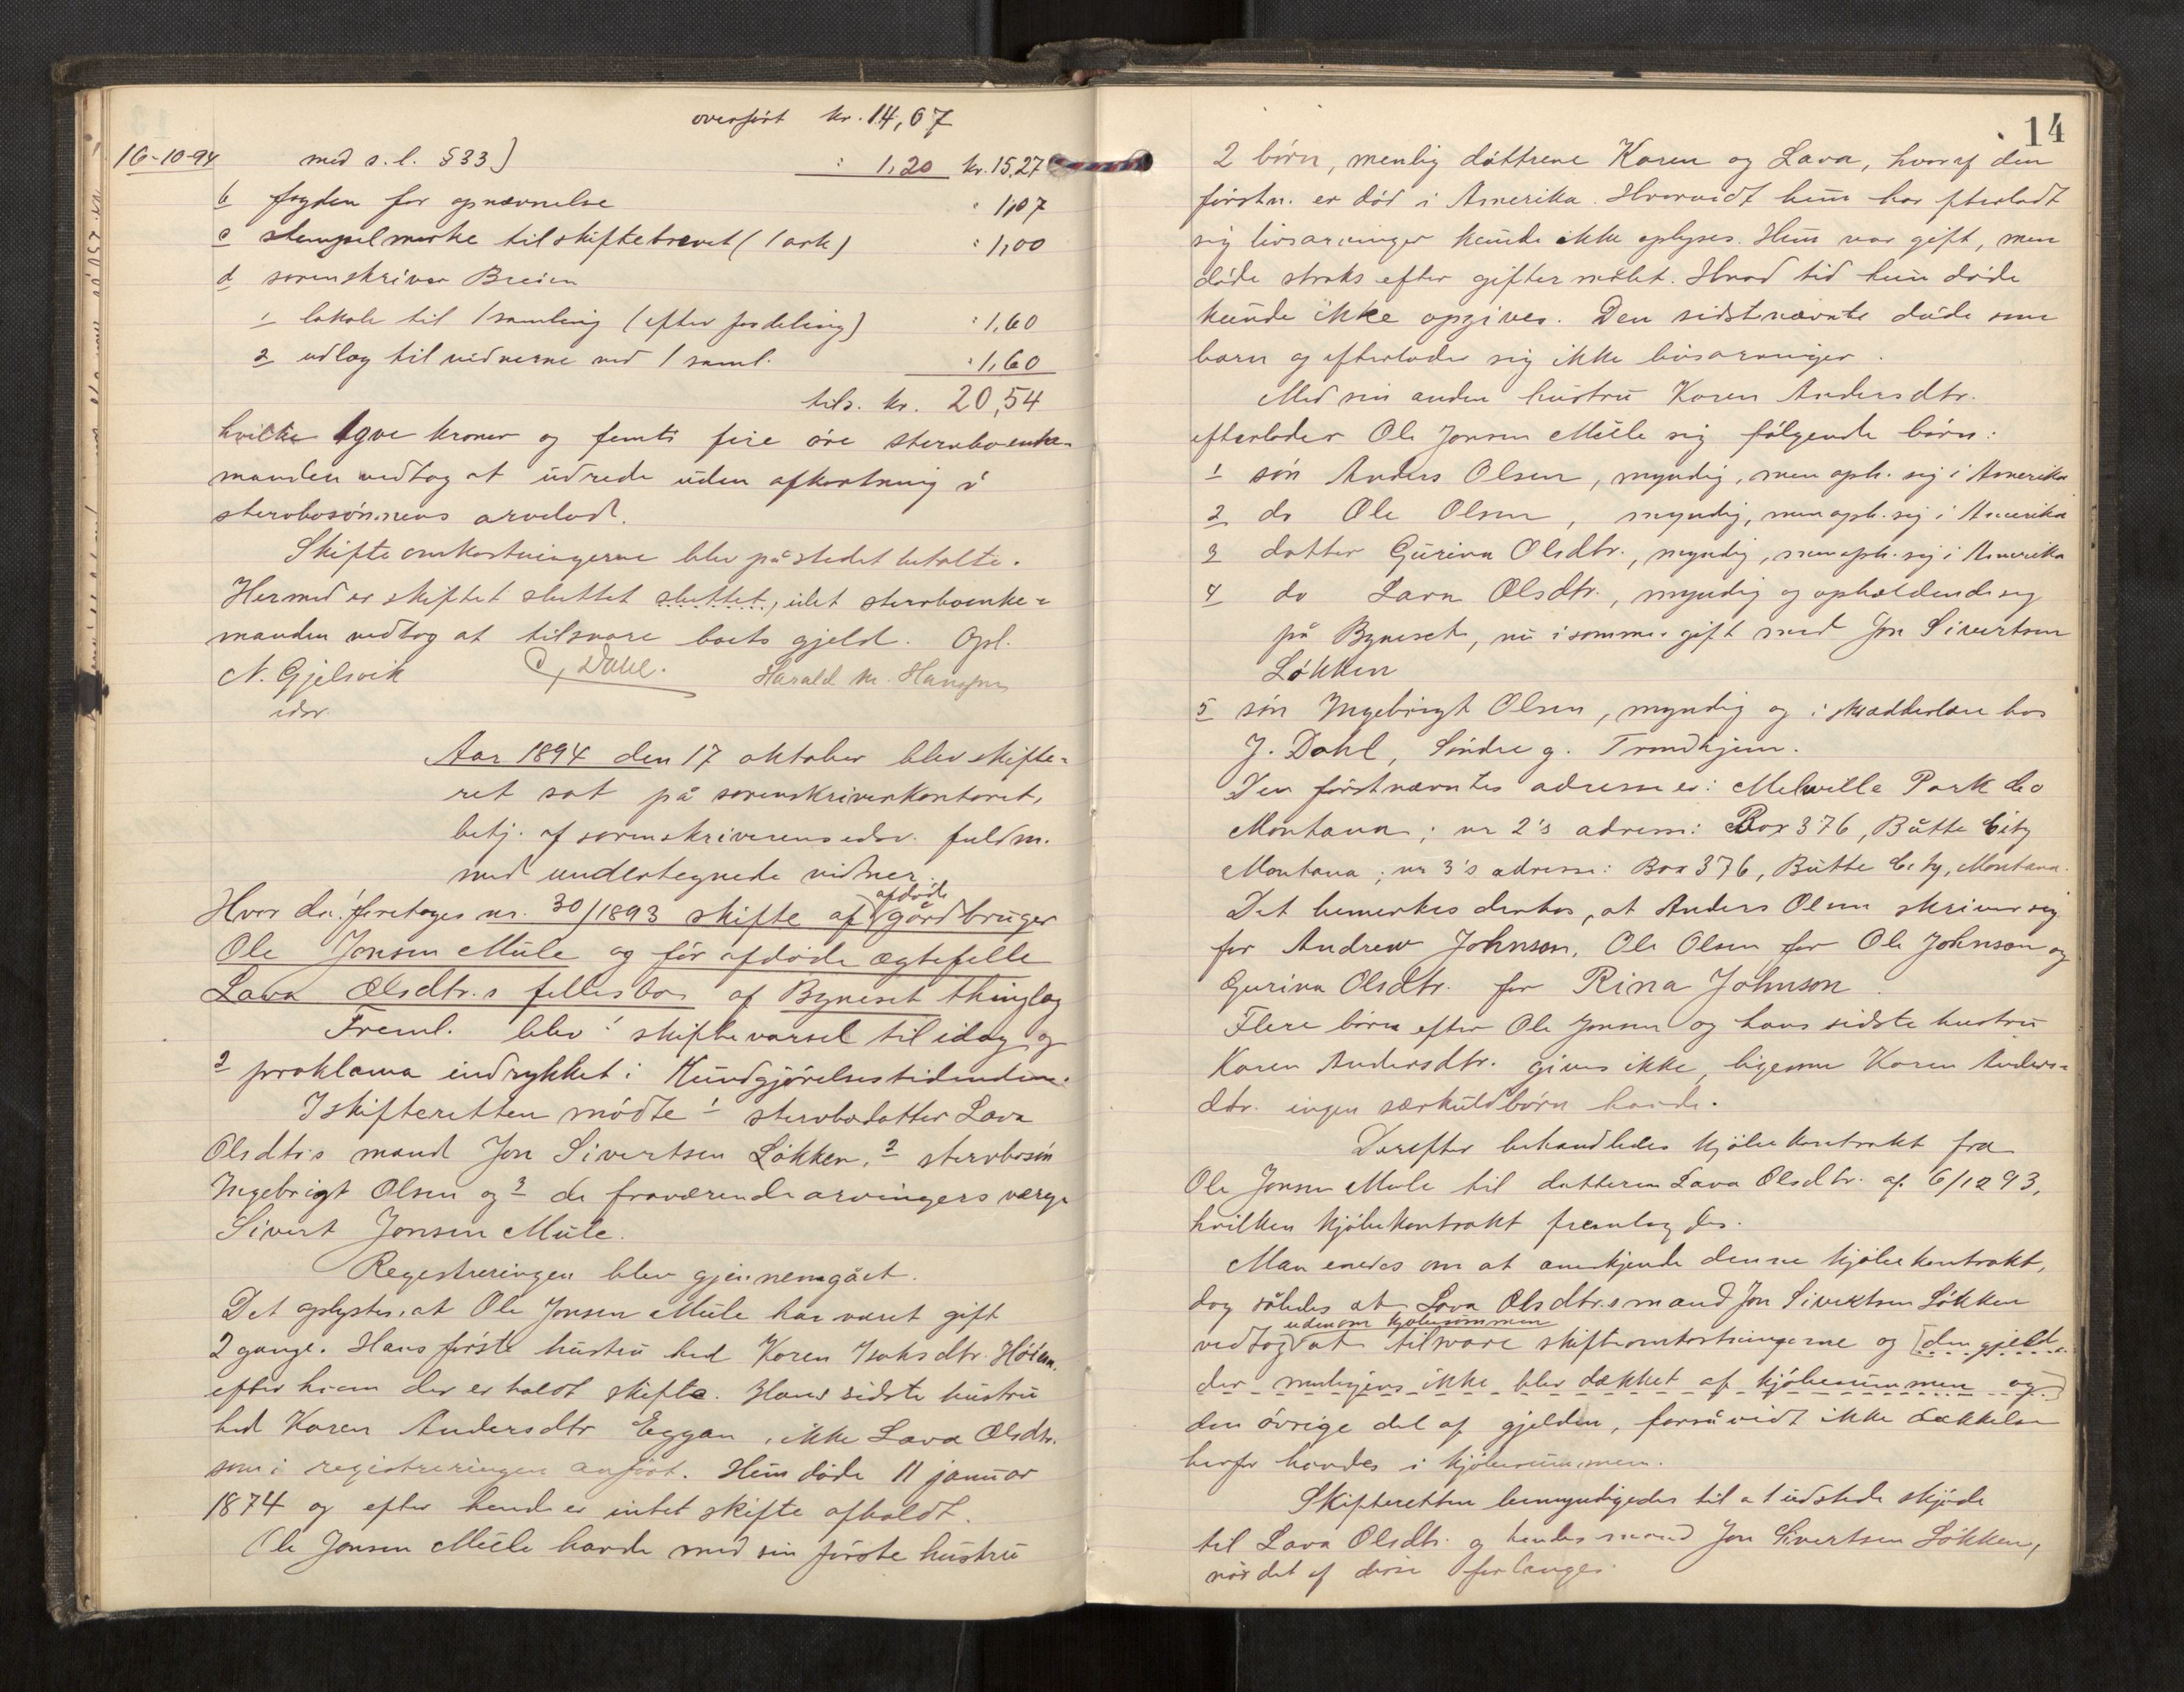 overført kr. 14,07
16-10-94 med s.l. § 33) : 1,20 kr. 15,27
b fogden for opnævnelse " 1,07
c stempelmerke til skiftebrevet (1 ark) : 1,00
d sorenskriver Breien
1 lokale til 1 samling (efter fordeling) : 1,60
2 udlæg til vidnerne ved 1 saml. " 1,60
tils. kr. 20,54
hvilke tyve kroner og femti fire øre sterboenke-
manden vedtog at udrede uden afkortning i
sterbosønnens arvelod.
Skifteomkostningerne blev på stedet betalte.
Hermed er skiftet sluttet sluttet, idet sterboenke=
manden vedtog at tilsvare boets gjeld. Opl.
N. Gjelsvik O, Dahl. Harald M. Hansen
edsv.
Aar 1894 den 17 oktober blev skifte=
ret sat på sorenskriverkontoret,
betj. af sorenskriverens edsv. fuldm.
med undertegnede vidner.
Hvor da: foretoges nr. 30/1893 skifte af afdøde gårdbruger
Ole Jonsen Mule og før afdøde ægtefelle
Lava Olsdtr.s fellesbo af Bynesset thinglag
Freml. blev 1 skiftevarsel til idag og
2 proklama indrykket i Kundgjørelsestidenden.
I skifteretten mødte 1 sterbodatter Lava
Olsdtrs mand Jon Sivertsen Løkken, 2 sterbosøn
Ingebrigt Olsen og 3 de fraværende arvingers værge
Sivert Jonsen Mule.
Registreringen blev gjennemgået.
Det oplystes, at Ole Jonsen Mule har været gift
2 gange. Hans første hustru hed Karen Isaksdtr. Høiem.
efter hvem der er holdt skifte. Hans sidste hustru
hed Karen Andersdtr Eggan, ikke Lava Olsdtr.
som i registreringen anført. Hun døde 11 januar
1874 og efter hende er intet skifte afholdt.
Ole Jonsen Mule havde med sin første hustru
14
2 børn, nemlig døttrene Karen og Lava, hvoraf den
førstn. er død i Amerika. Hvorvidt hun har efterladt
sig livsarvinger kunde ikke oplyses. Hun var gift, men
døde straks efter giftermålet. Hvad tid hun døde
kunde ikke opgives. Den sidstnævnte døde som
barn og efterlader sig ikke livsarvinger.
Med sin anden hustru Karen Andersdtr.
efterlader Ole Jonsen Mule sig følgende børn:
1 søn Anders Olsen, myndig, men oph. sig i Amerika
2 do Ole Olsen, myndig, men oph. sig i Amerika
3 datter Gurina Olsdtr., myndig, men oph. sig i Amerika
4 do Lava Olsdtr., myndig og opholdende sig
på Bynesset, nu i sommer gift med Jon Sivertsen
Løkken
5 søn Ingebrigt Olsen, myndig og i skredderlære hos
J. Dahl, Søndre g. Trondhjem.
Den førstnævntes adresse er: Melwille Park do
Montana; nr 2's adresse: Box 376, Butte City
Montana; nr 3's adresse: Box 376, Butte City, Montana.
Det bemerkes derhos, at Anders Olsen skriver sig
for Andrew Johnson, Ole Olsen for Ole Johnson og
Gurina Olsdtr. for Rina Johnson.
Flere børn efter Ole Jonsen og hans sidste hustru
Karen Andersdtr. gives ikke, ligesom Karen Anders=
dtr. ingen særkuldbørn havde.
Derefter behandledes kjøbekontrakt fra
Ole Jonsen Mule til datteren Lava Olsdtr. af 6/12 93,
hvilken kjøbekontrakt fremlagdes.
Man enedes om at anerkjende denne kjøbekontrakt,
dog således at Lava Olsdtr.s mand Jon Sivertsen Løkken
udenom kjøbesummen
vedtog at tilsvare skifteomkostningerne og [den gjeld
der muligens ikke blev dækket af kjøbesummen og]
den øvrige del af gjelden, forsåvidt ikke dækkelse
herfor havdes i kjøbesummen.
Skifteretten bemyndigedes til at udstede skjøde
til Lava Olsdtr. og hendes mand Jon Sivertsen Løkken,
når det af disse forlanges.